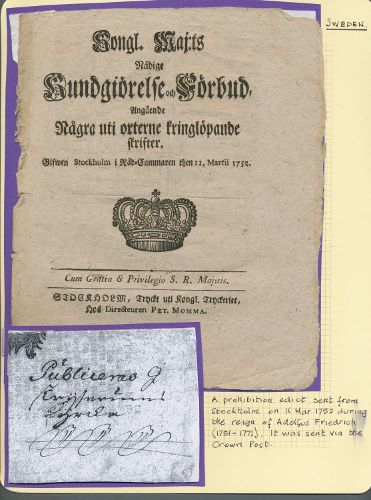 SWEDEN.
Kongl. Maj:ts
Nådige
Kundgiörelse och Förbud,
Angående
Några uti orterne kringlöpande
skrifter.
Gifwen Stockholm i Råd-Cammaren then 11. Martii 1752.
Cum Gratia & Privilegio S. R. Maj:tis.
STOCKHOLM, Tryckt uti Kongl. Tryckeriet,
Hos Directeuren PET. MOMMA.
Publiceras
A prohibition edict sent from
Stockholm on 11 Mar 1752 during
the reign of Adolfus Friedrich
(1751-1771). It was sent via the
Crown Post.